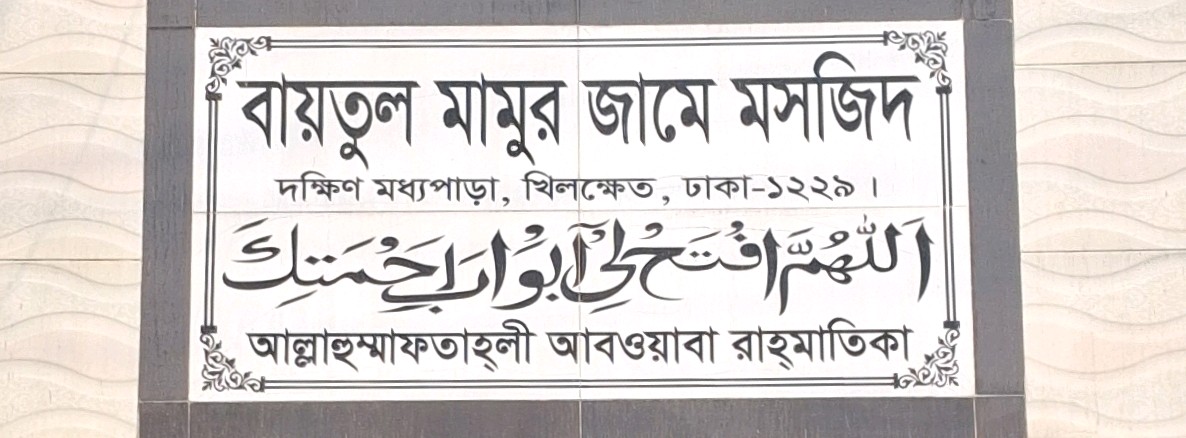 বায়তুল মামুর জামে মসজিদ
দক্ষিণ মধ্যপাড়া, খিলক্ষেত, ঢাকা-১২২৯ ।
اَللّٰهُمَّ افْتَحْ لِيْ اَبْوَابَ رَحْمَتِكَ
আল্লাহুম্মাফতাহ্‌লী আবওয়াবা রাহ্‌মাতিকা